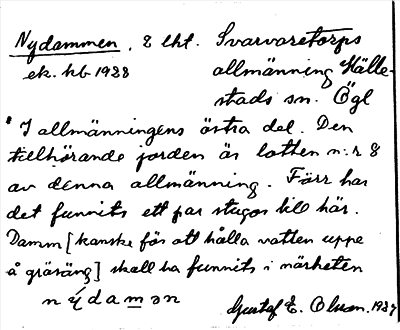 Nydammen, 2 lht. Svarvaretorps
ek. hb. 1928 allmänning Hälle-
stads sn. Ögl
"I allmänningens östra del. Den
tillhörande jorden är lotten n:r 8
av denna allmänning. Förr har
det funnits ett par stugor till här.
Damm [kanske för att hålla vatten uppe
å gräsäng] skall ha funnits i närheten
nýdamən
Gustaf E. Olsson. 1937